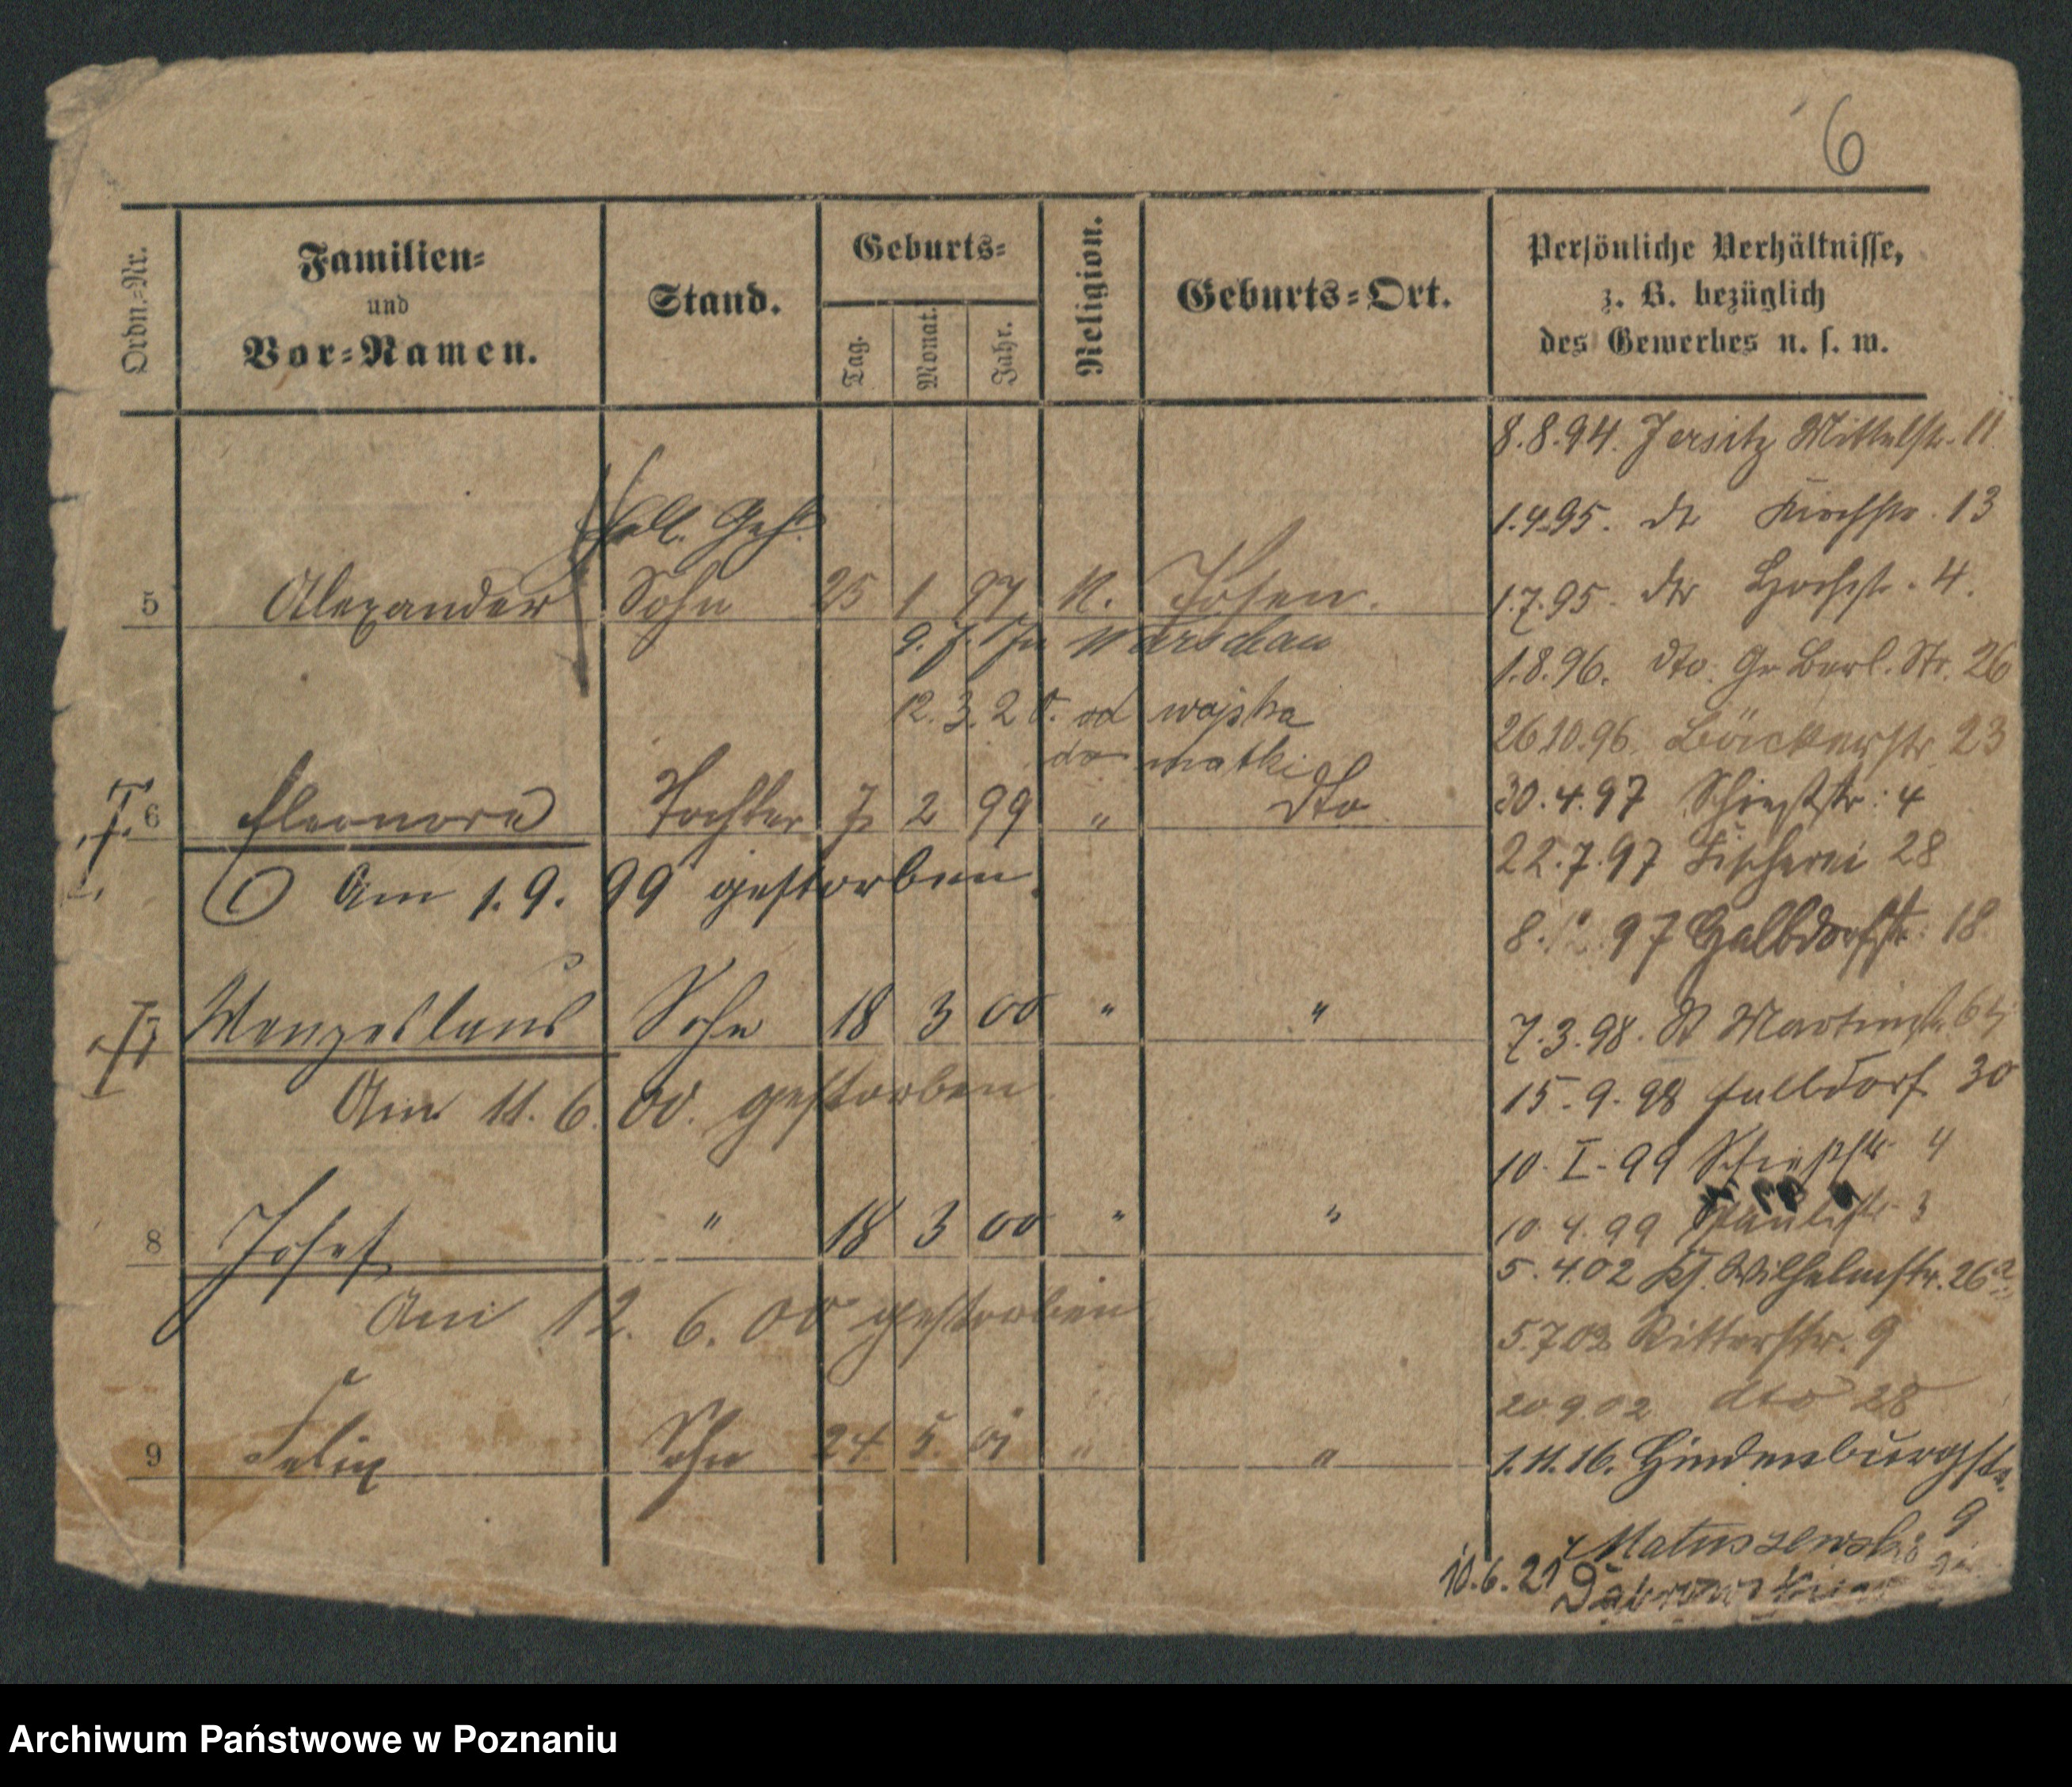 6
Ordn.-Nr.
Familien-
und
Vor-Namen.
Stand.
Geburts-
Tag.
Monat.
Jahr.
Religion.
Geburts-Ort.
Persönliche Verhältnisse,
z. B. bezüglich
des Gewerbes u. s. w.
5 Alexander Sohn 25 1 97 K. Posen.
Warschau
12. 3. 20. od wojska
do matki
6 Eleonore Tochter 7 2 99 " dto
Am 1. 9. 99 gestorben.
7 Wenzeslaus Sohn 18 3 00 " "
Am 11. 6. 00. gestorben
8 Josef " 18 3 00 " "
Am 12. 6. 00 gestorben
9 Felix Sohn 24 5. " "
8.8.94. Jersitz Mittelstr. 11
1.4.95. dt Kirchstr. 13
1.7.95. dto Hochstr. 4.
1.8.96. dto. Gr Berl. Str. 26
26 10.96. Bäckerstr 23
30.4.97 Schießstr: 4
22.7.97 Fischerei 28
8. 97 Halbdorfstr. 18
7.3.98. St Martinstr
15.9.98 Halbdorf 30
10.I.99 Schießstr 4
10.4.99 Paulistr 3
5.4.02 Wilhelmstr. 26a
5.7.02 Ritterstr. 9
20 9.02 dto 28
1.11.16. Hindenburgstr.
9
Matuszewski
10.6.21
Archiwum Państwowe w Poznaniu